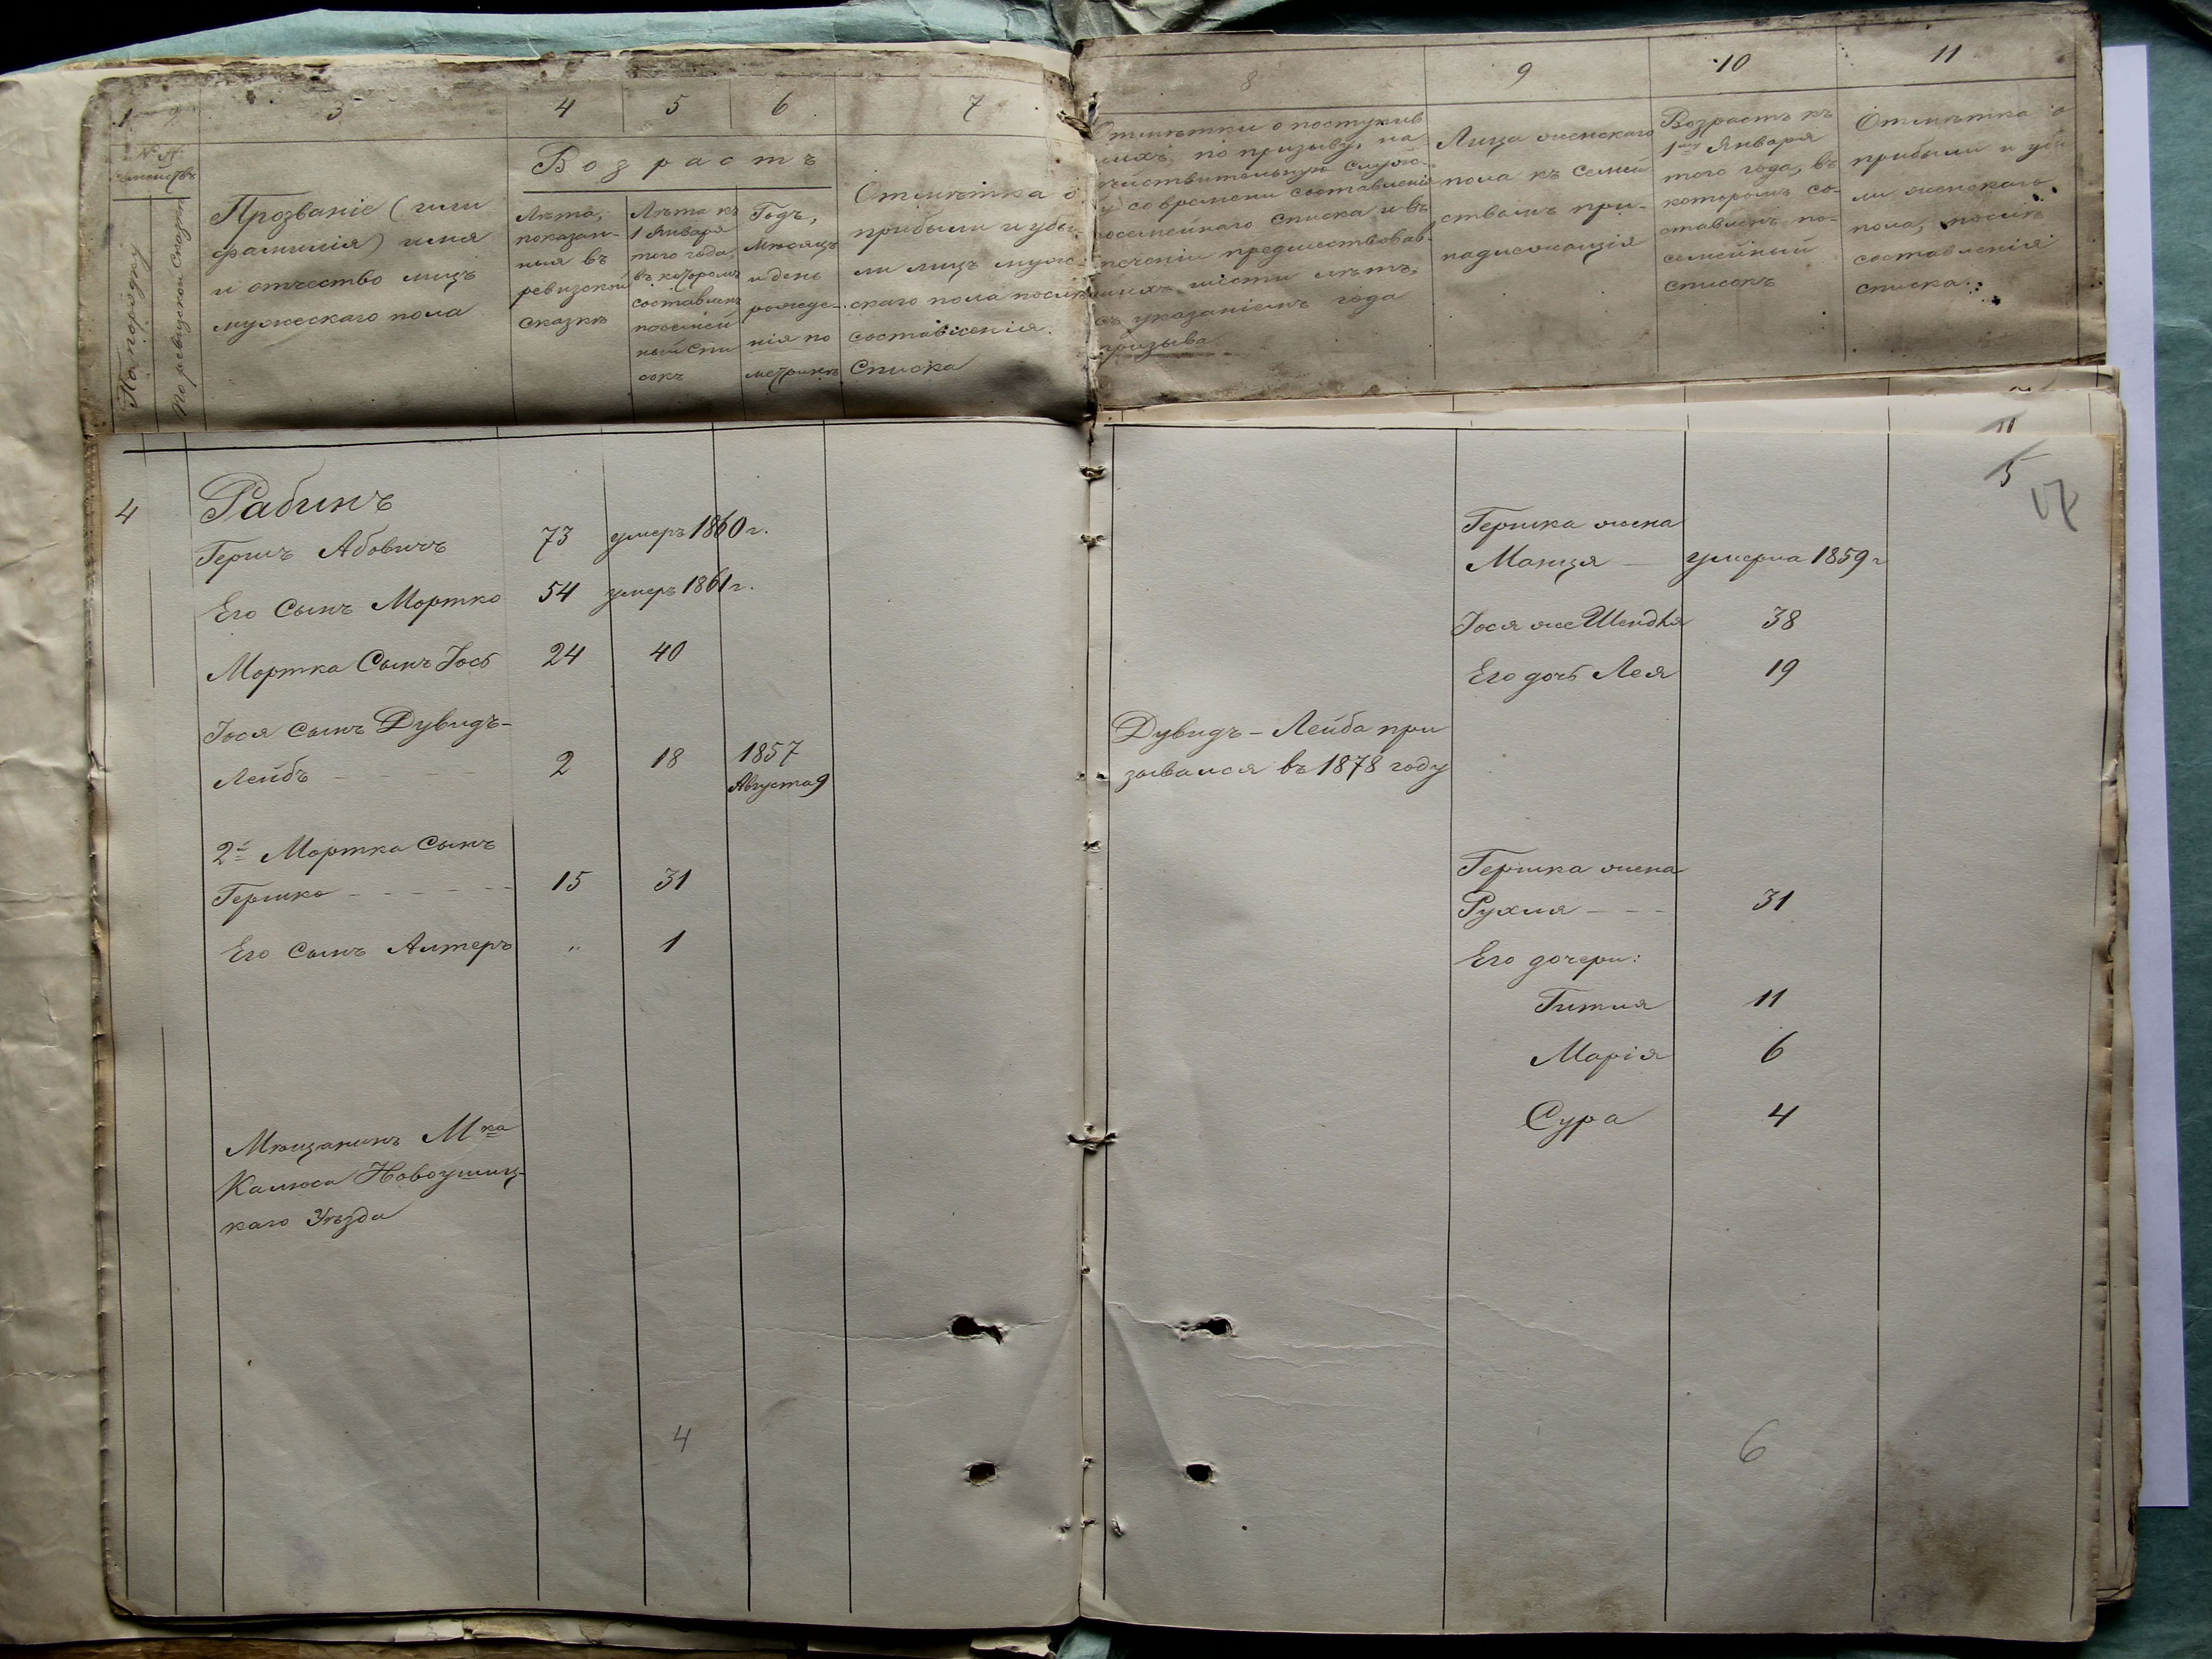 1
2
3
4
5
6
7
№ №
семействъ
По порядку
По ревизской сказкѣ
Прозваніе (или
фамилія) имя
и отчество лицъ
мужескаго пола
Возрастъ
Лѣта,
показан-
ныя въ
ревизской
сказкѣ
Лѣта къ
1 Января
того года,
въ которомъ
составленъ
посемей
ный спи
сокъ
Годъ,
мѣсяцъ
и день
рожде-
нія по
метрикѣ
Отмѣтка о
прибыли и убы-
ли лицъ муже-
скаго пола послѣ
составленія
списка
8
9
10
11
Отмѣтки о поступив
шихъ, по призыву, на
дѣйствительную служ-
бу со времени составленія
посемейнаго списка и въ
теченіи предшествовав-
шихъ шести лѣтъ,
съ указаніемъ года
призыва
Лица женскаго
пола къ семей
ствамъ при-
надлежащія
Возрастъ къ
1му Января
того года, въ
которомъ со-
ставленъ по-
семейный
списокъ
Отмѣтка о
прибыли и убы
ли женскаго
пола, послѣ
составленія
списка
4
Рабинъ
Гершъ Абовичъ 73 умеръ 1860 г.
Его Сынъ Мортко 54 умеръ 1861 г.
Мортка Сынъ Іось 24 40
Іося сынъ Дувидъ-
Лейбъ 2 18 1857
Августа 9
2й Мортка Сынъ
Гершко 15 31
Его Сынъ Алтеръ " 1
Мѣщанинъ Мка
Калюса Новоушиц-
каго Уѣзда
4
11
5
17
Гершка жена
Манця умерла 1859 г
Іося же Шендля 38
Его дочь Лея 19
Дувидъ-Лейба при
зывался въ 1878 году
Гершка жена
Рухля 31
Его дочери:
Гитля 11
Марія 6
Сура 4
6